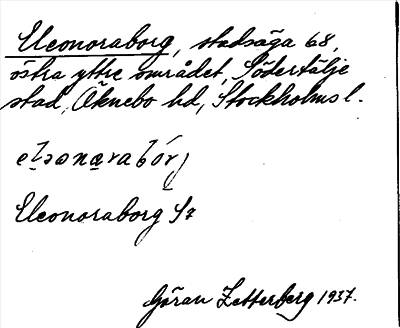 Eleonoraborg, stadsäga 68,
östra yttre området, Södertälje
stad, Öknebo hd, Stockholms l.
Eleonoraborg S7
Göran Zetterberg 1937.